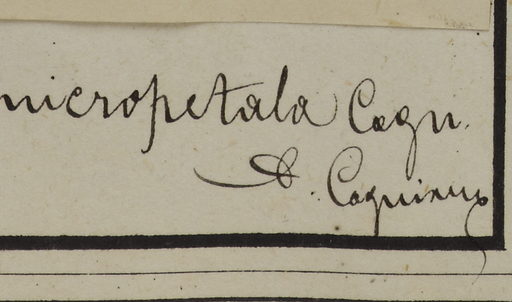 micropetala Cogn.
A. Cogniaux